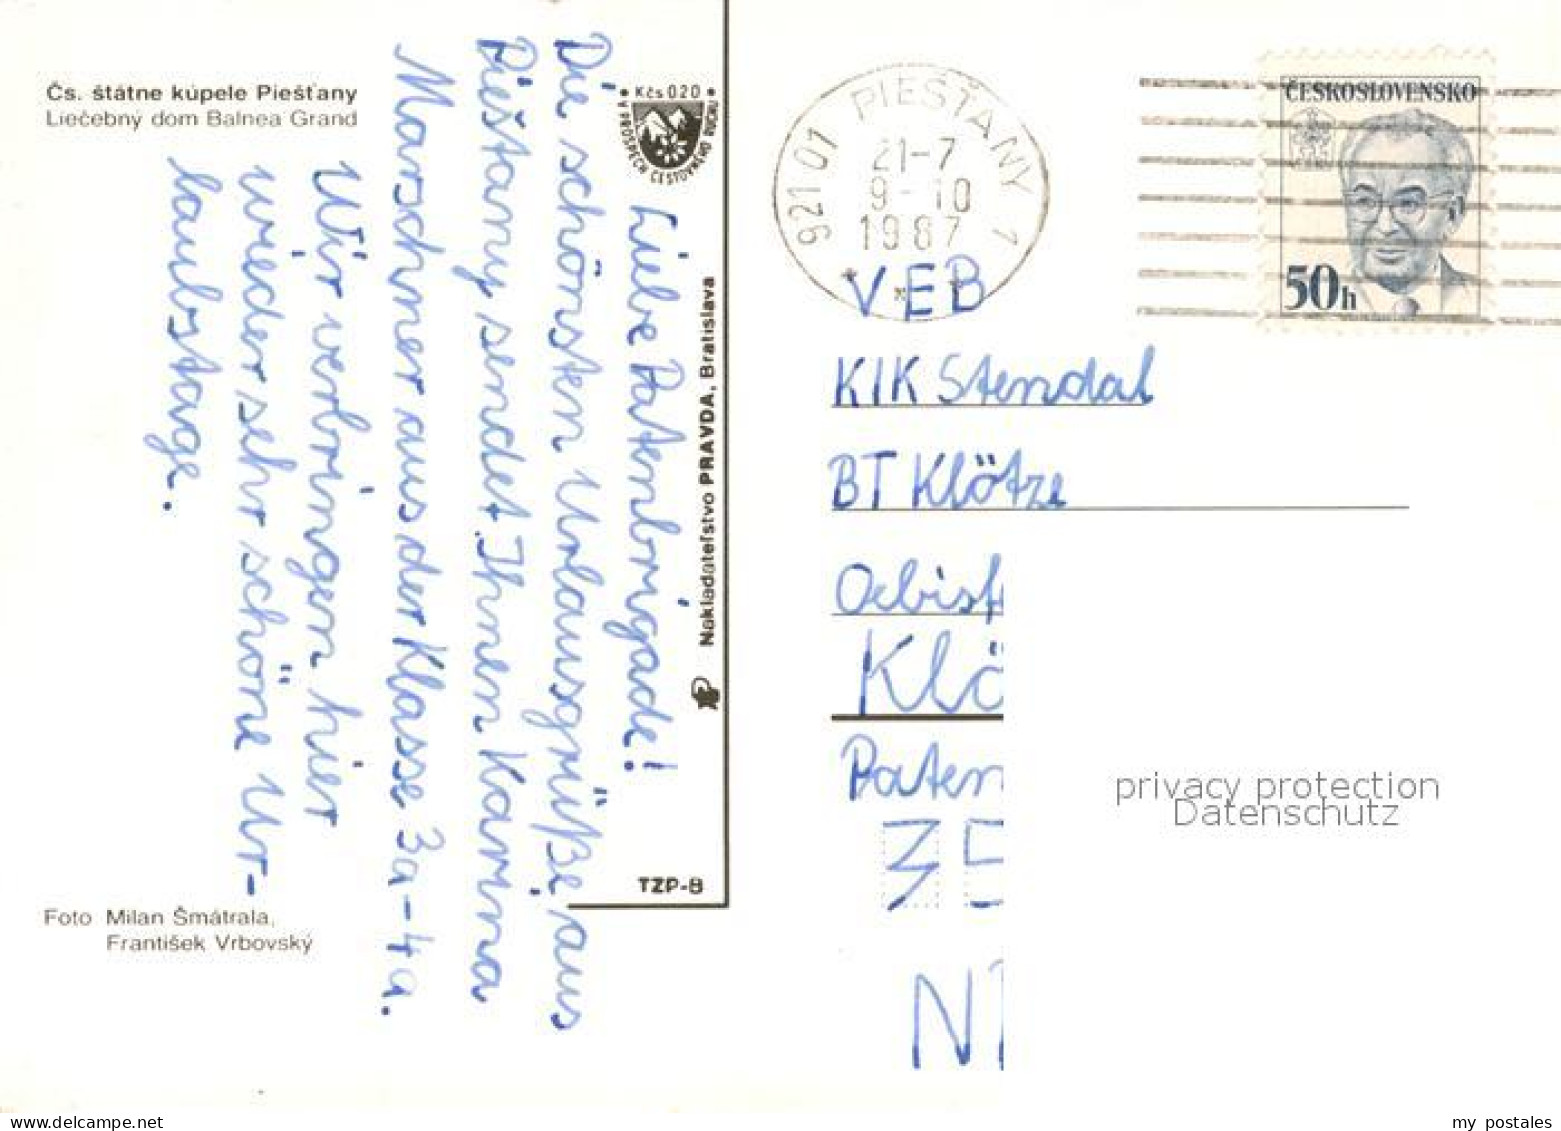 Čs. štátne kúpele Piešťany
Liečebný dom Balnea Grand
Kčs 020
V PROSPECH CESTOVNÉHO RUCHU
Liebe Patenbrigade!
Die schönsten Urlausgrüße aus
Piešťany sendet Ihnen Karina
Marschner aus der Klasse 3a-4a.
Wir verbringen hier
wieder sehr schöne Ur-
laubstage.
Nakladateľstvo PRAVDA, Bratislava
TZP-8
Foto Milan Šmátrala,
František Vrbovský
921 01 PIEŠŤANY 1
21-7
9-10
1987
ČESKOSLOVENSKO
50h
VEB
KIK Stendal
BT Klötze
Oebisf
Klö
Paten
35
N
privacy protection
Datenschutz
my postales